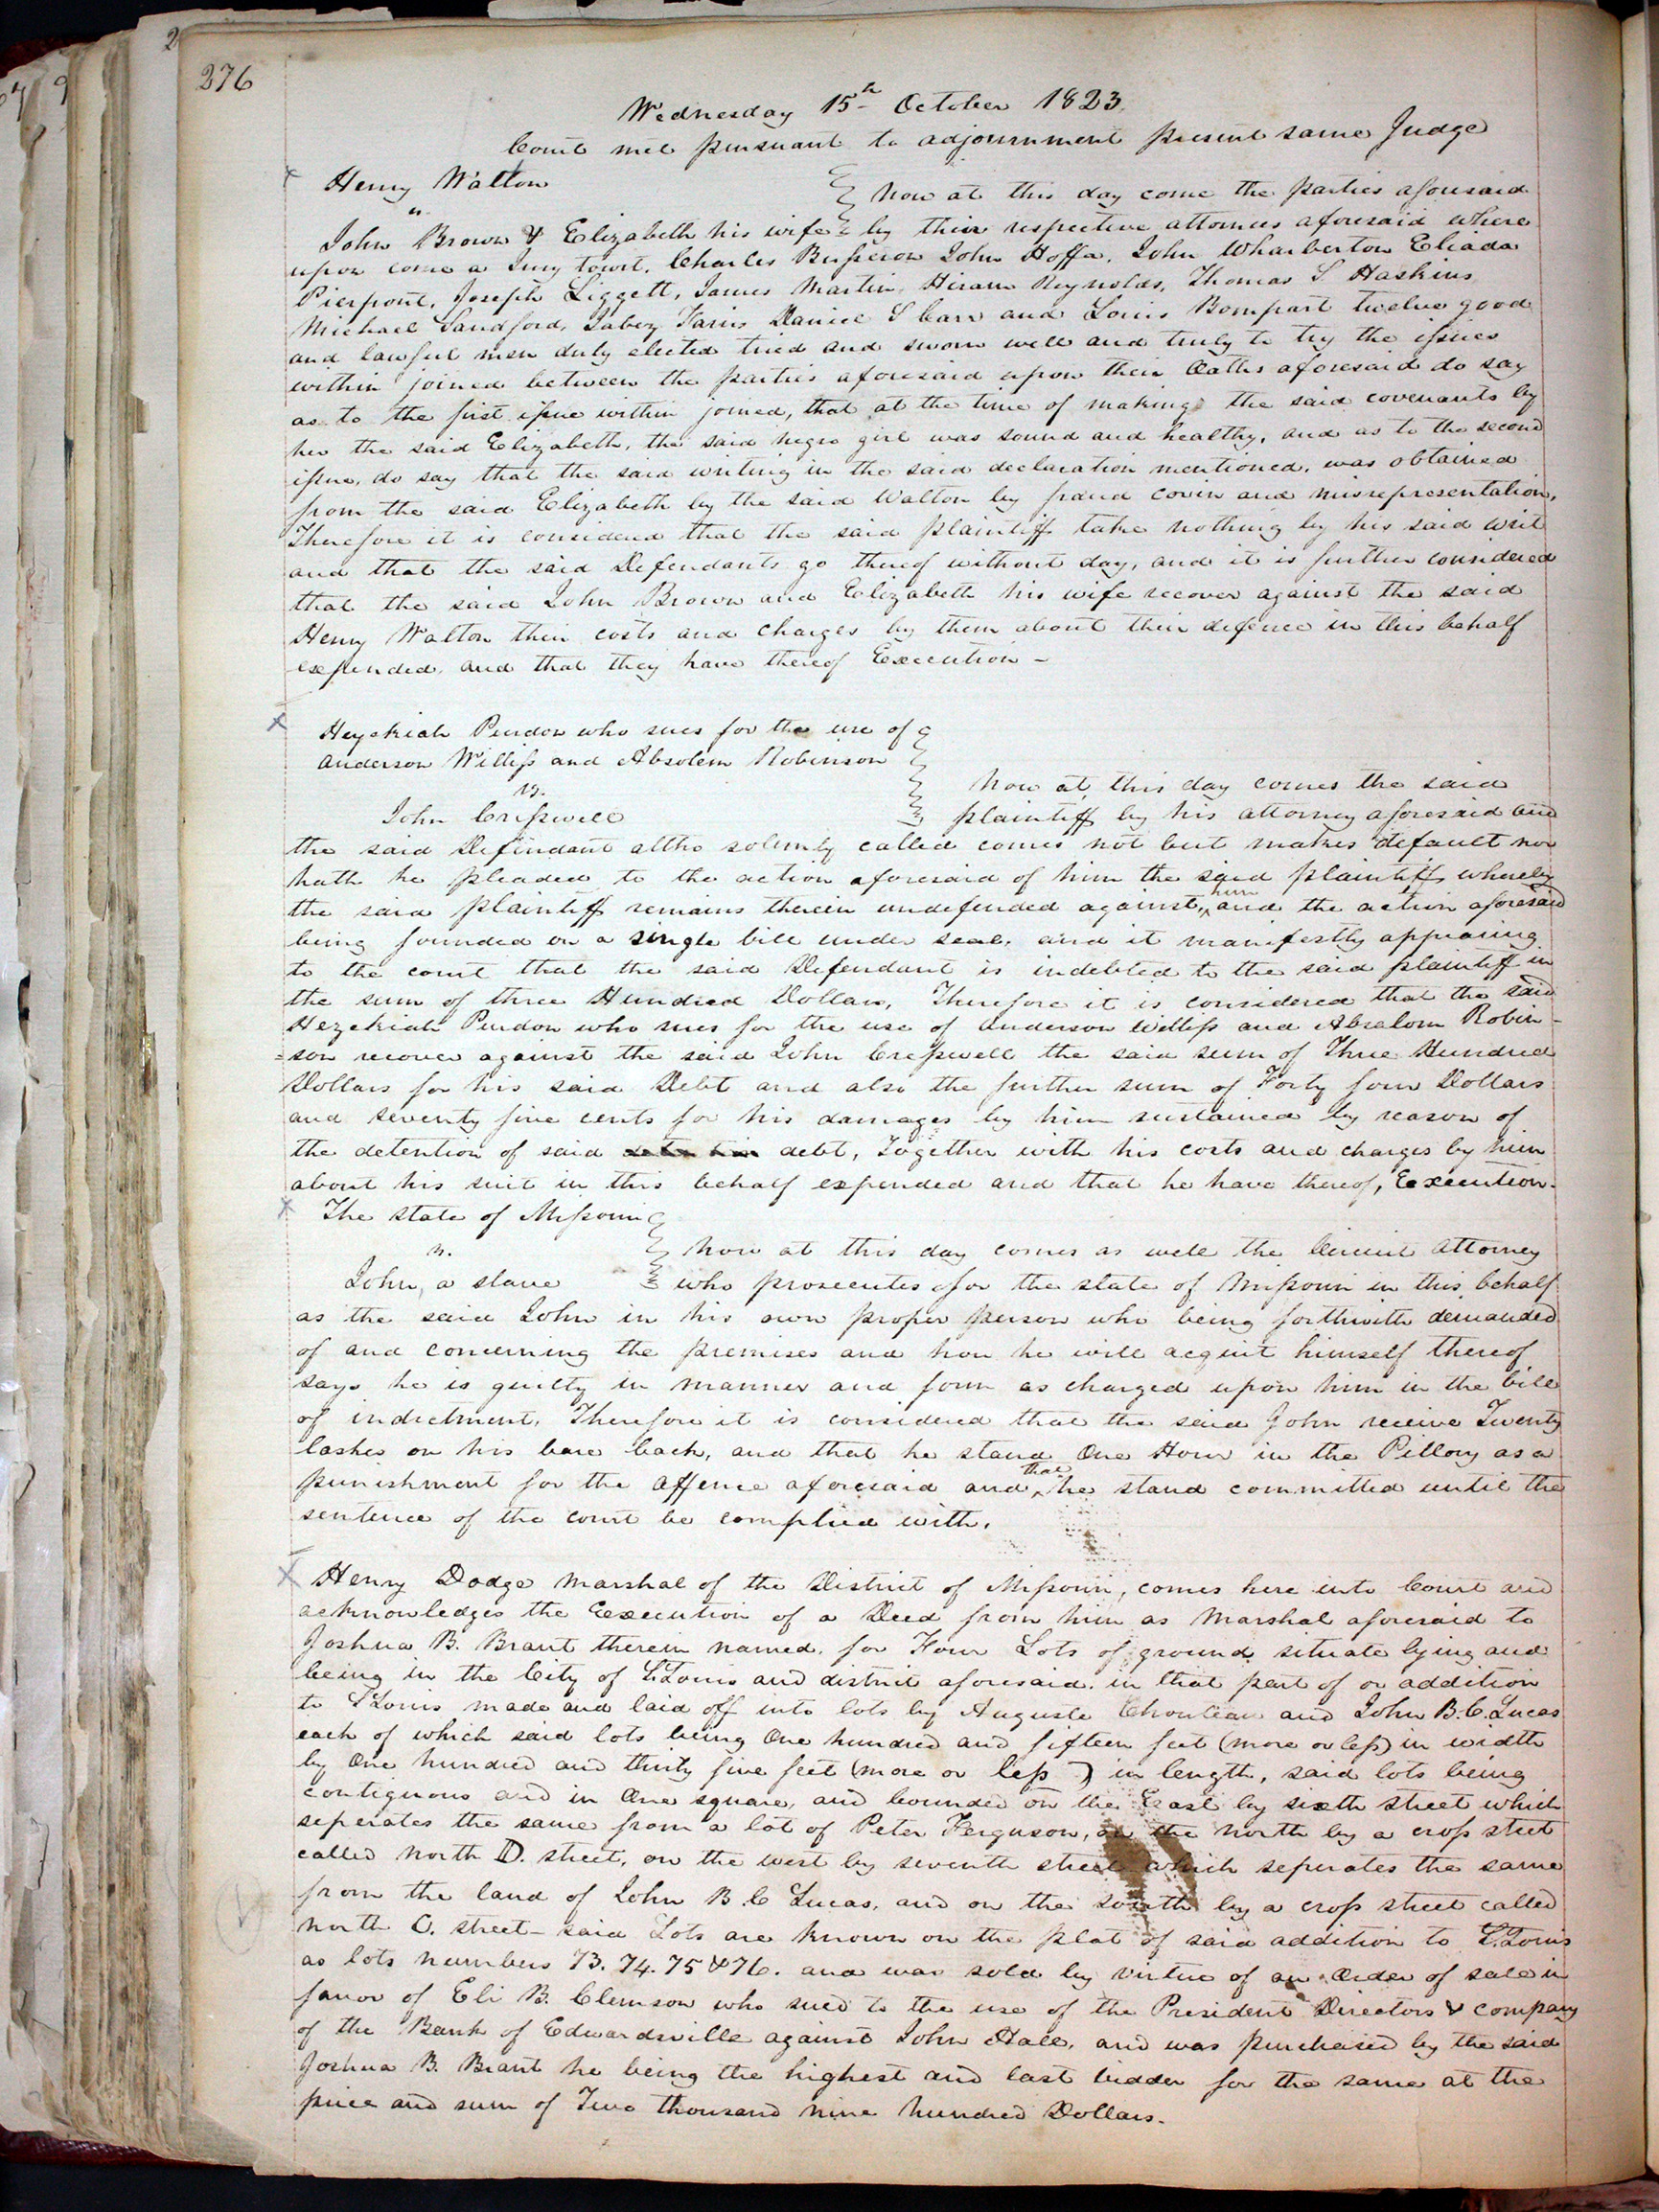 276
Wednesday 15th October 1823.
Court met pursuant to adjournment present same Judge
Henry Walton
vs.
now at this day come the parties aforesaid
John Brown & Elizabeth his wife by their respective attornies aforesaid where
upon come a Jury towit, Charles Busseron John Hoffa, John Wharberton Eliada
Pierpont, Joseph Liggett, James Martin, Hiram Reynolds, Thomas S. Haskins
Michael Sandford, Jabez Faris Daniel S Carr and Louis Bompart twelve good
and lawful men duly elected tried and sworn well and truly to try the issues
within joined between the parties aforesaid upon their Oaths aforesaid do say
as to the first issue within joined, that at the time of making the said covenants by
her the said Elizabeth, the said negro girl was sound and healthy, and as to the second
issue, do say that the said writing in the said declaration mentioned, was obtained
from the said Elizabeth by the said Walton by fraud covin and misrepresentation,
Therefore it is considered that the said plaintiff take nothing by his said writ
and that the said Defendants go thereof without day, and it is further considered
that the said John Brown and Elizabeth his wife recover against the said
Henry Walton their costs and charges by them about their defence in this behalf
expended, and that they have thereof Execution -
Hezekiah Purdon who sues for the use of
Anderson Willess and Absolem Robinson
vs.
now at this day comes the said
John Cresswell
plaintiff by his attorney aforesaid and
the said Defendant altho solemnly called comes not but makes default nor
hath he pleaded to the action aforesaid of him the said plaintiff, whereby
the said plaintiff remains therein undefended against, him and the action aforesaid
being founded on a single bill under seal, and it manifestly appearing
to the court that the said Defendant is indebted to the said plaintiff in
the sum of three Hundred Dollars, Therefore it is considered that the said
Hezekiah Purdon who sues for the use of Anderson Willess and Absalom Robin-
=son recover against the said John Cresswell the said sum of Three Hundred
Dollars for his said Debt and also the further sum of Forty four Dollars
and seventy five cents for his damages by him sustained by reason of
the detention of said debt, Together with his costs and charges by him
about his suit in this behalf expended and that he have thereof, Execution.
The State of Missouri
vs.
now at this day comes as well the Circuit Attorney
John, a slave
who prosecutes for the state of Missouri in this behalf
as the said John in his own proper person who being forthwith demanded
of and concerning the premises and how he will acquit himself thereof
says he is guilty in manner and form as charged upon him in the bill
of indictment, Therefore it is considered that the said John receive Twenty
lashes on his bare back, and that he stand One Hour in the Pillory as a
punishment for the offence aforesaid and that he stand committed until the
sentence of the court be complied with.
Henry Dodge Marshal of the District of Missouri, comes here into Court and
acknowledges the Execution of a Deed from him as Marshal aforesaid to
Joshua B. Brant therein named, for Four Lots of ground situate lying and
being in the City of St Louis and district aforesaid, in that part of or addition
to St Louis made and laid off into lots by Auguste Chouteau and John B. C. Lucas
each of which said lots being One hundred and fifteen feet (more or less) in width
by One hundred and thirty five feet (more or less) in length, said lots being
contiguous and in One square, and bounded on the East by sixth street which
seperates the same from a lot of Peter Ferguson, on the north by a cross street
called north D. street, on the west by seventh street which seperates the same
from the land of John B C Lucas, and on the south by a cross street called
north C. street - said Lots are known on the plat of said addition to St. Louis
as lots numbers 73. 74. 75 & 76. and was sold by virtue of an Order of sale in
favor of Eli B. Clemson who sued to the use of the President Directors & company
of the Bank of Edwardsville against John Hall, and was purchased by the said
Joshua B. Brant he being the highest and last bidder for the same at the
price and sum of Two thousand nine hundred Dollars.